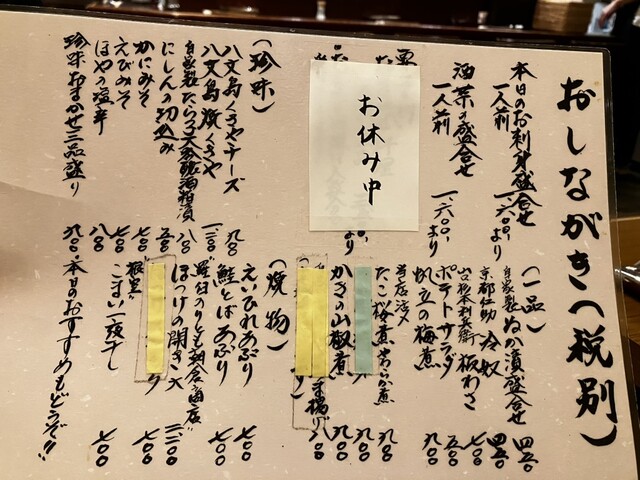 おしながき(税別)
本日のお刺身盛合せ
一人前 一、六〇〇より
酒菜の盛合せ
一人前 一、六〇〇より
お休み中
より
(珍味)
八丈島くさやチーズ 九〇〇
八丈島焼くさや 一、二〇〇
自家製たらこ大吟醸酒粕漬 八〇〇
にしんの切込み 五〇〇
かにみそ 七〇〇
えびみそ 七〇〇
ほやの塩辛 八〇〇
珍味おまかせ三品盛り 九〇〇
(一品)
自家製ぬか漬盛合せ 四五〇
京都仁助 冷奴 四五〇
山谷本利兵衛 板わさ 七〇〇
ポテトサラダ 五〇〇
帆立の梅煮 九〇〇
たこ梅煮 九〇〇
かきの山椒煮 九〇〇
八〇〇
(焼物)
えいひれあぶり 七〇〇
鮭とばあぶり 七〇〇
羅臼のりとも朝倉商店
ほっけの開き 大 二、二〇〇
七〇〇
根室
こまい一夜干し 七〇〇
本日のおすすめもどうぞ!!